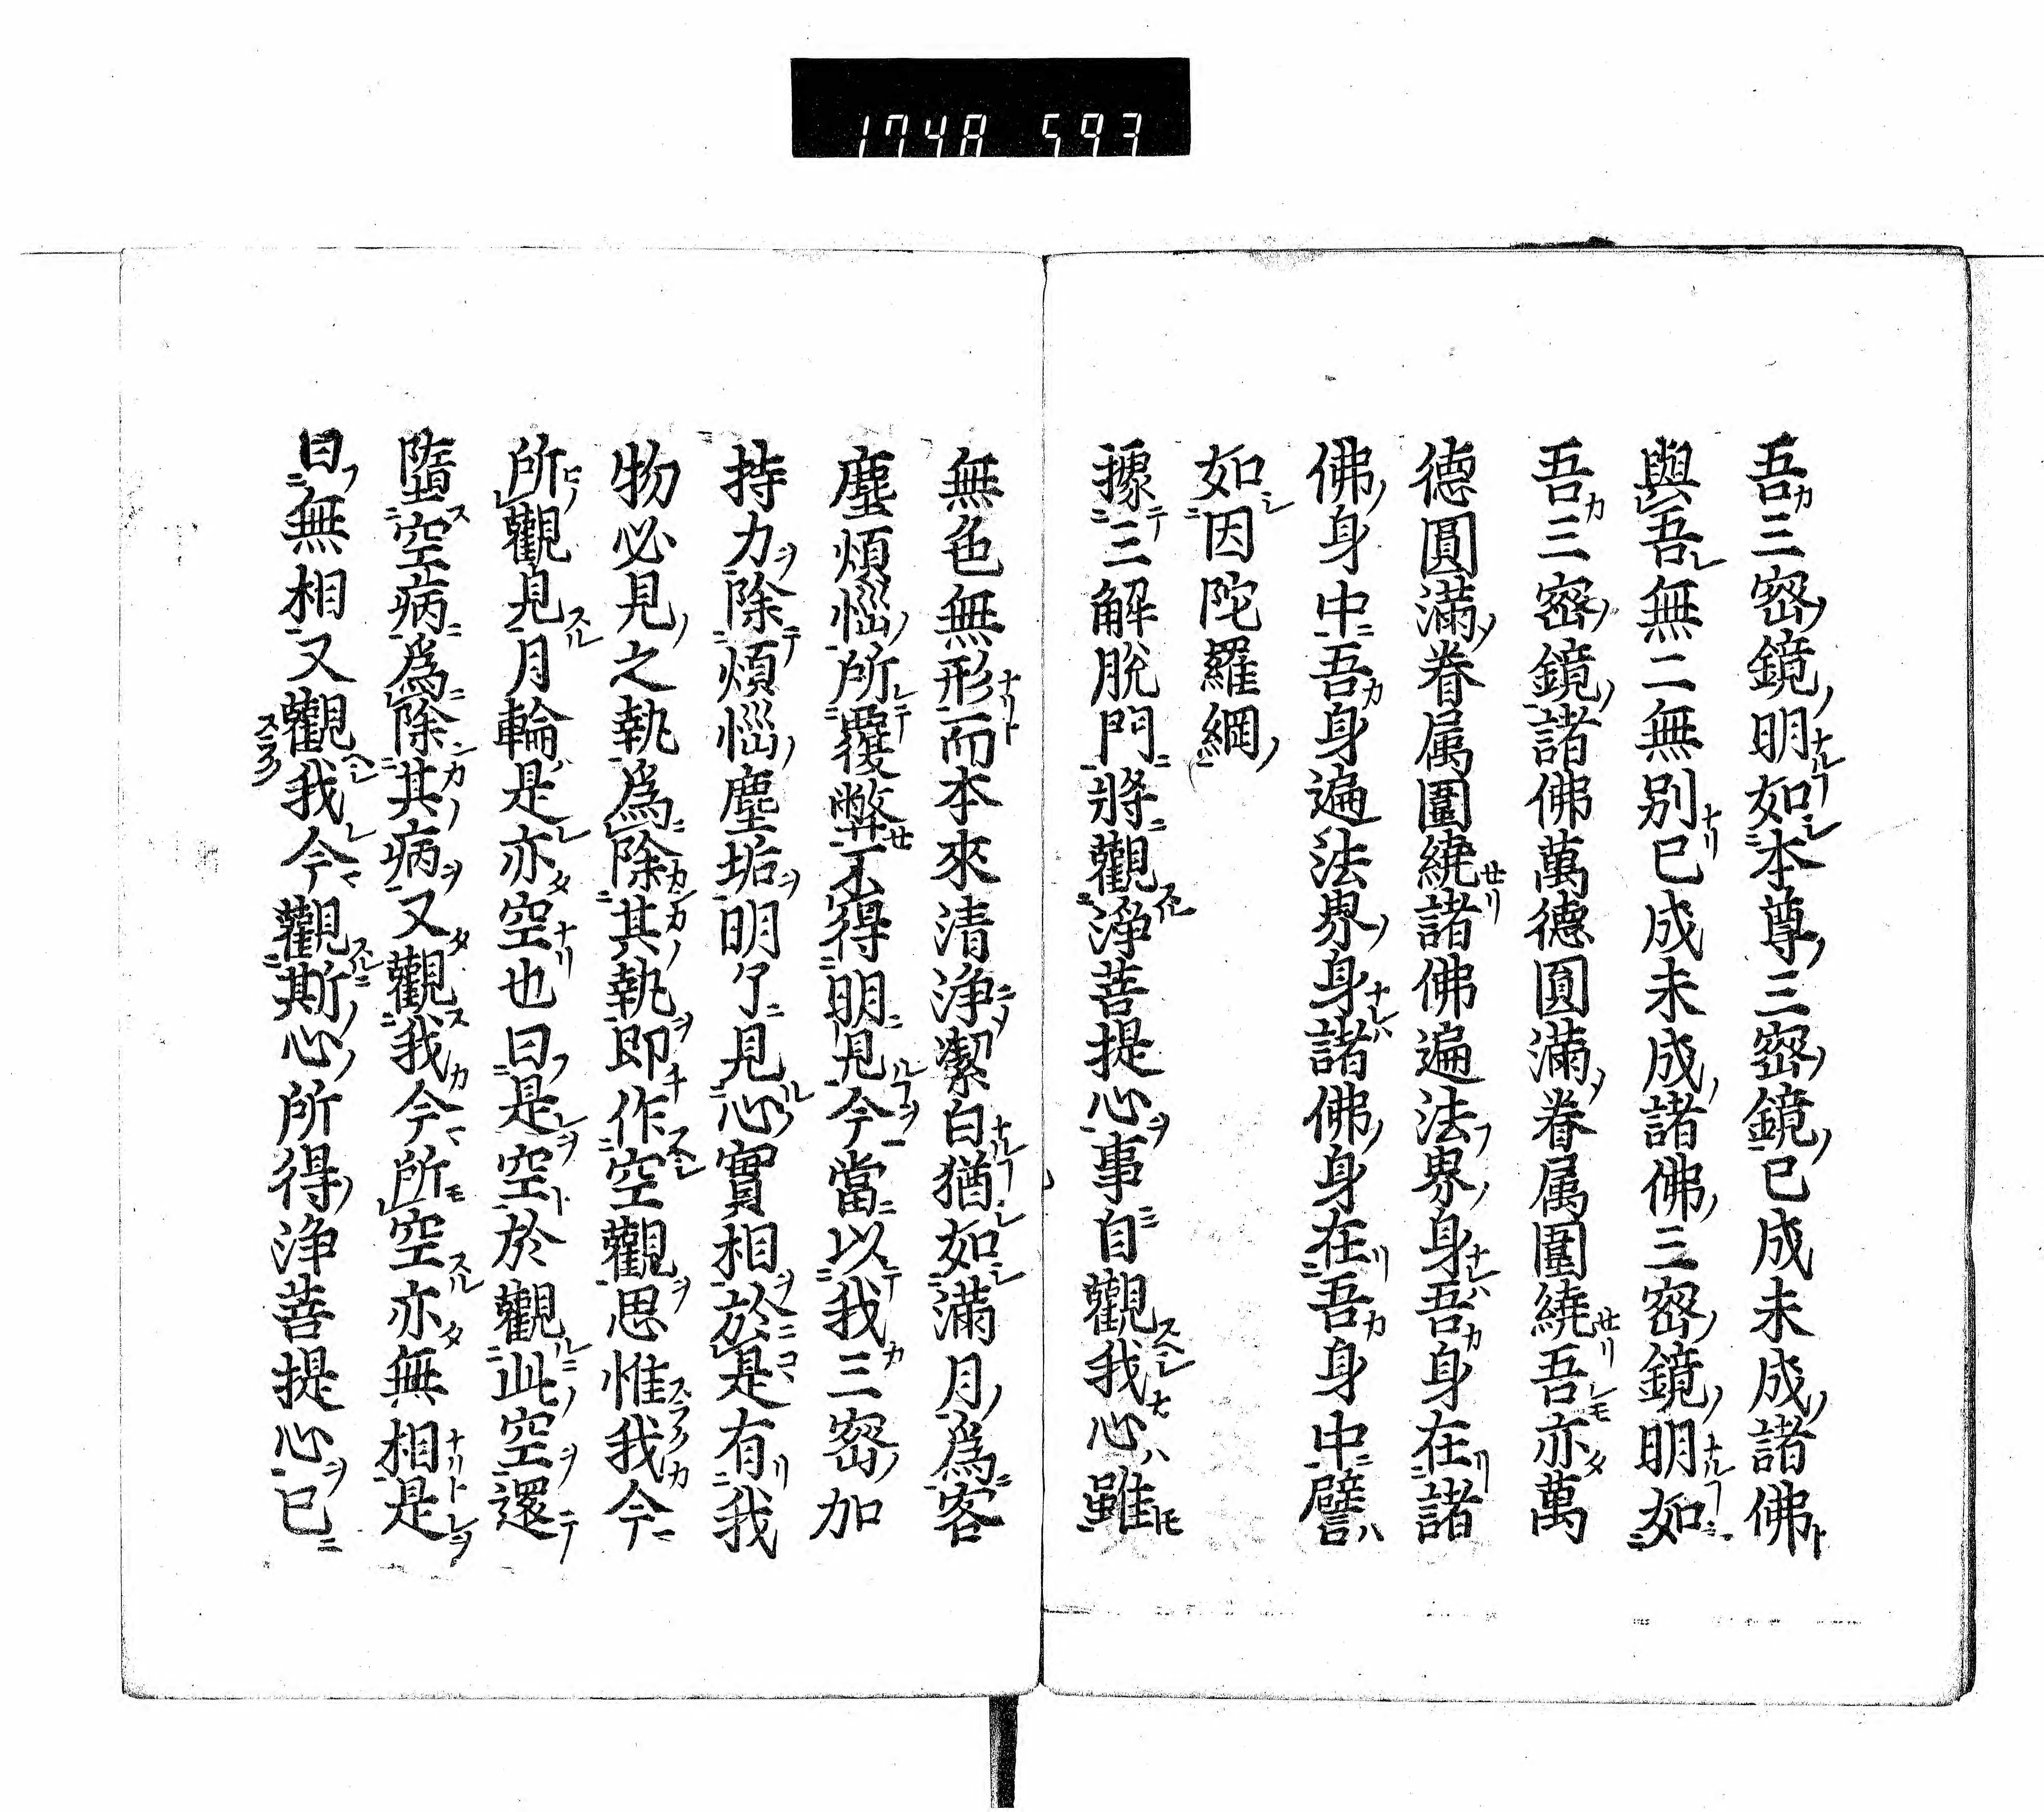 1748 593
吾三密鏡明如本尊三密鏡已成未成諸佛
與吾無二無別已成未成諸佛三密鏡明如
吾三密鏡諸佛萬德圓滿眷属圍繞吾亦萬
德圓滿眷属圍繞諸佛遍法界身吾身在諸
佛身中吾身遍法界身諸佛身在吾身中譬
如因陀羅網
據三解脫門將觀淨菩提心事自觀我心雖
無色無形而本來清淨潔白猶如滿月為客
塵煩惱所覆弊不得明見今當以我三密加
持力除煩惱塵垢明了見心實相於是有我
物必見之執為除其執即作空觀思惟我今
所觀見月輪是亦空也曰是空於觀此空還
墮空病為除其病又觀我今所空亦無相是
曰無相又觀我今觀斯心所得淨菩提心已